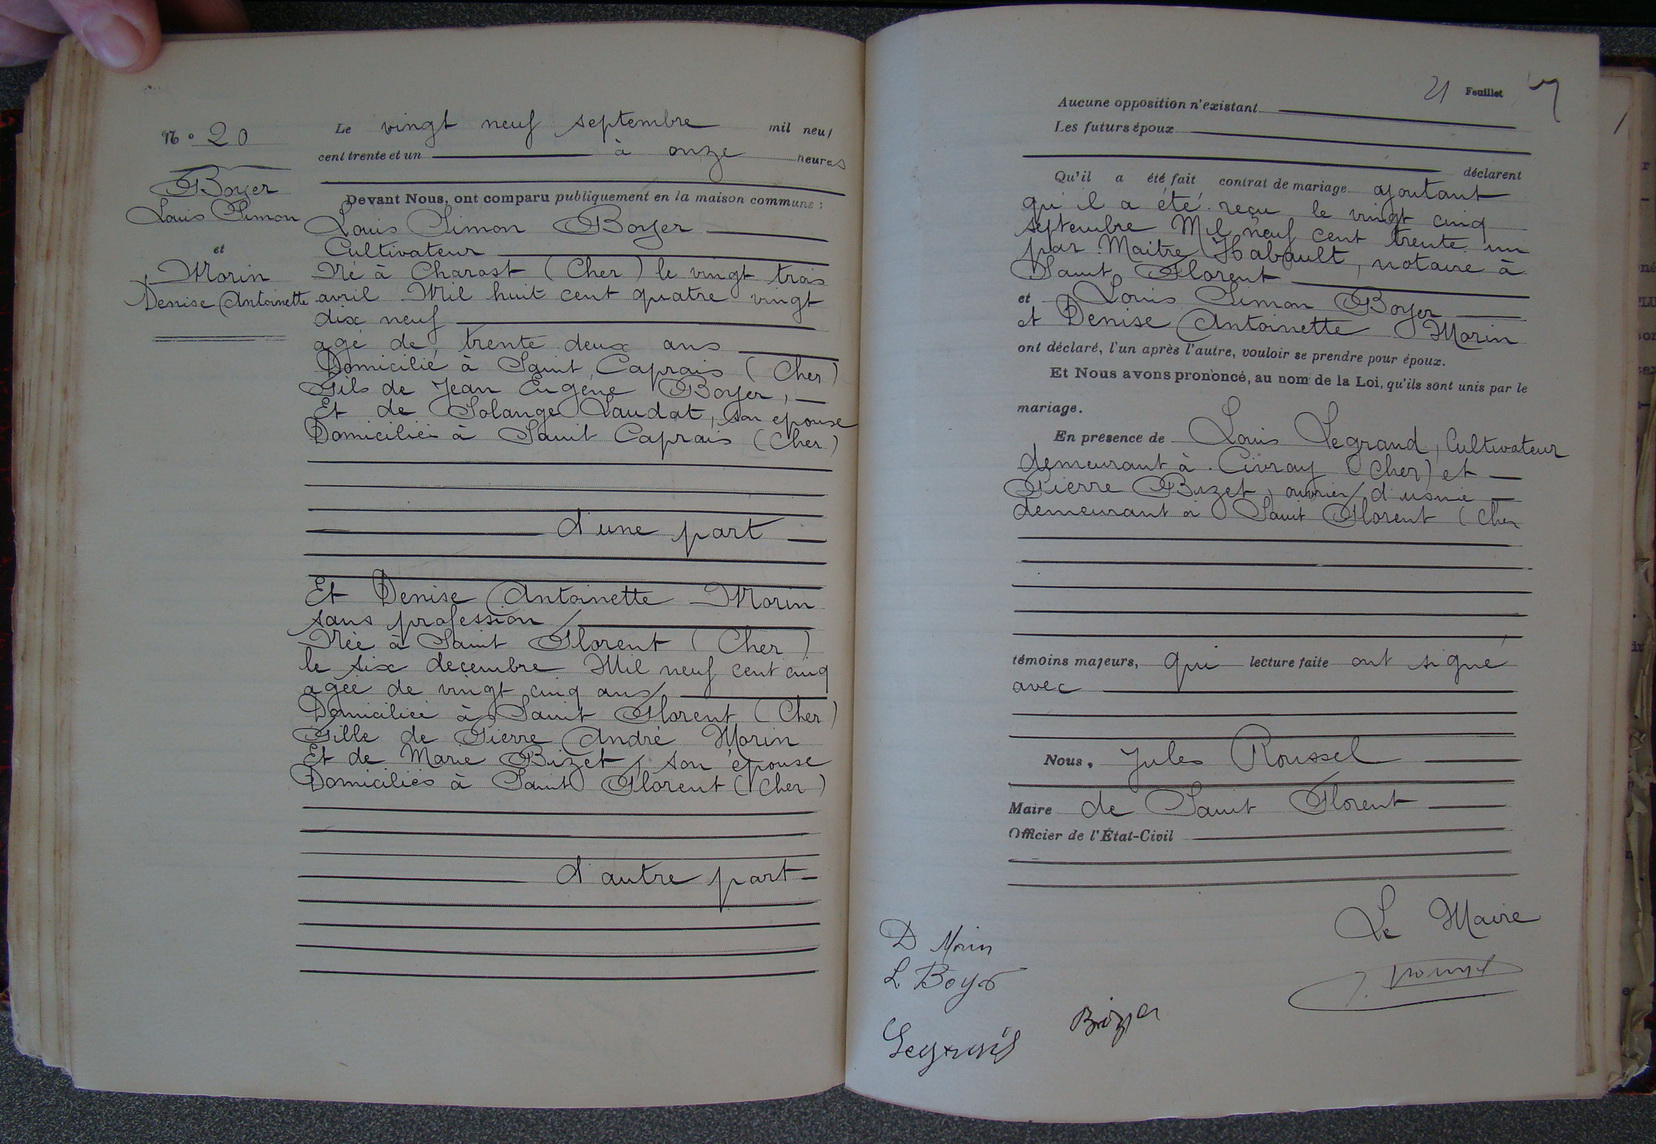 N° 20
Boyer
Louis Simon
et
Morin
Denise Antoinette
Le vingt neuf septembre mil neuf
cent trente et un à onze heures
Devant Nous, ont comparu publiquement en la maison commune :
Louis Simon Boyer
Cultivateur
Né à Charost (Cher) le vingt trois
avril Mil huit cent quatre vingt
dix neuf
agé de trente deux ans
Domicilié à Saint Caprais (Cher)
Fils de Jean Eugène Boyer,
Et de Solange Laudat, son épouse
Domiciliés à Saint Caprais (Cher)
d'une part
Et Denise Antoinette Morin
sans profession
Née à Saint Florent (Cher)
le six décembre Mil neuf cent cinq
agée de vingt cinq ans
Domiciliée à Saint Florent (Cher)
Fille de Pierre André Morin
Et de Marie Bizet, son épouse
Domiciliés à Saint Florent (Cher)
d'autre part
21 Feuillet
Aucune opposition n'existant
Les futurs époux
déclarent
Qu'il a été fait contrat de mariage ajoutant
qu'il a été reçu le vingt cinq
septembre Mil neuf cent trente un
par Maitre Habault, notaire à
Saint Florent
et Louis Simon Boyer
et Denise Antoinette Morin
ont déclaré, l'un après l'autre, vouloir se prendre pour époux.
Et Nous avons prononcé, au nom de la Loi, qu'ils sont unis par le
mariage.
En présence de Louis Legrand, Cultivateur
demeurant à Civray (Cher) et
Pierre Bizet, ouvrier d'usine
demeurant à Saint Florent (Cher
témoins majeurs, qui lecture faite ont signé
avec
Nous, Jules Roussel
Maire de Saint Florent
Officier de l'État-Civil
Le Maire
D Morin
L Boyer